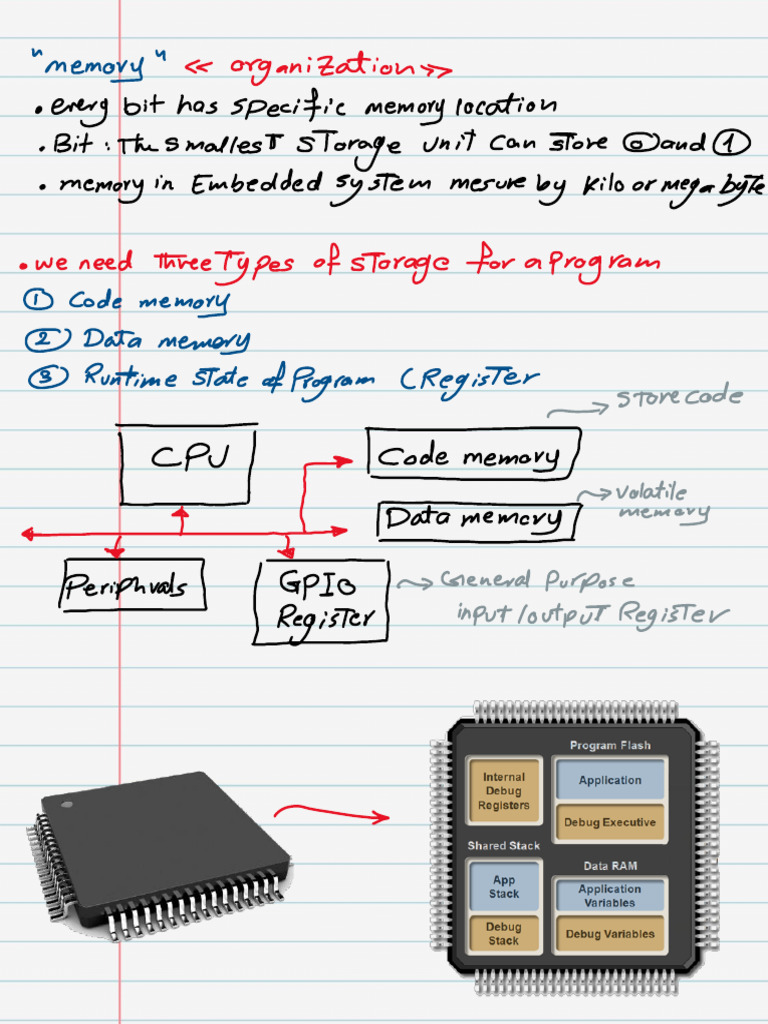 "memory" << organization >>
• every bit has specific memory location
• Bit : The smallest storage unit can store 0 and 1
• memory in Embedded system mesure by kilo or mega byte
• we need three Types of storage for a program
① Code memory
② Data memory
③ Runtime State of Program ( Register
store code
CPU
Code memory
volatile
memory
Data memory
Periphrals
GPIO
Register
General Purpose
input/output Register
Program Flash
Internal
Debug
Registers
Application
Debug Executive
Shared Stack
Data RAM
App
Stack
Application
Variables
Debug
Stack
Debug Variables